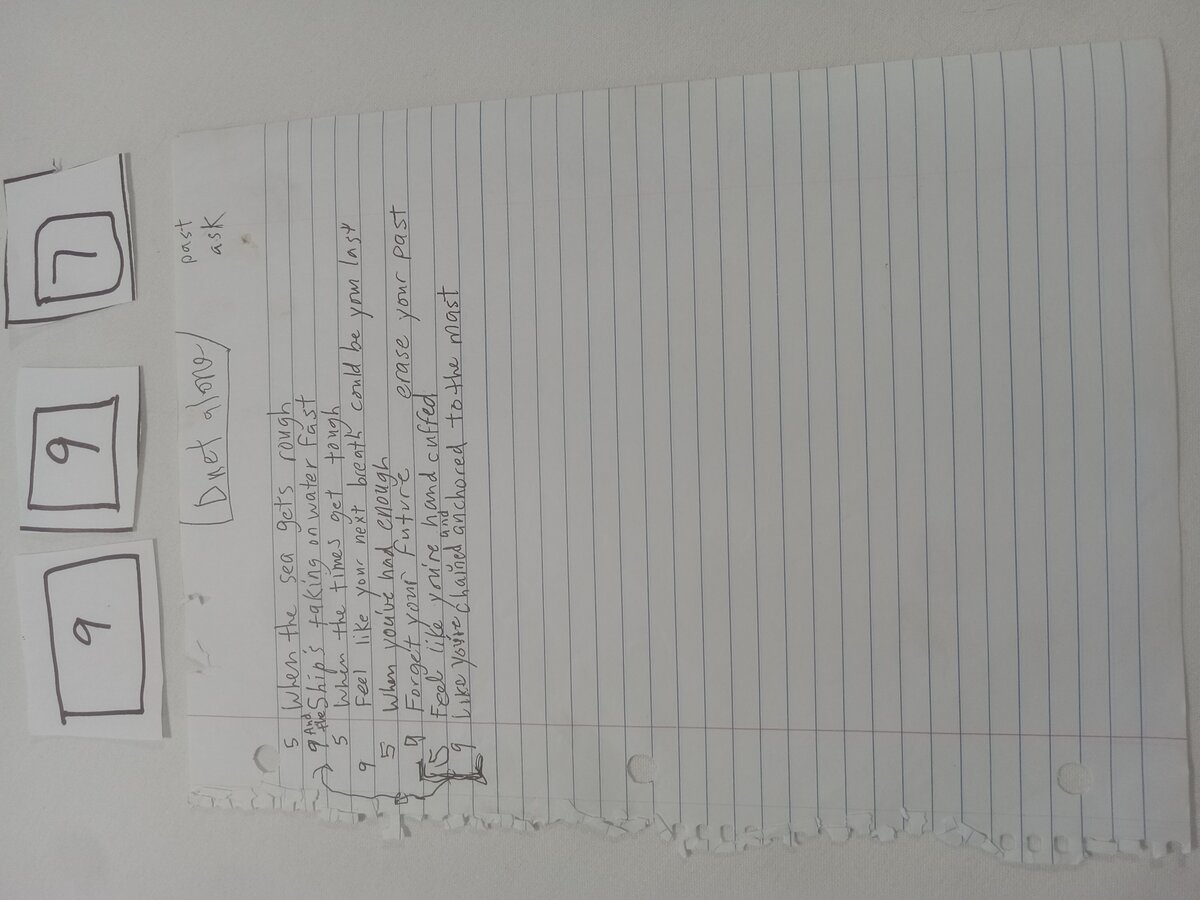 9
9
7
Duet alone
past
ask
5 When the sea gets rough
9 And the Ship's taking on water fast
5 When the times get tough
9 Feel like your next breath could be your last
5 When you've had enough
9 Forget your future erase your past
5 Feel like you're hand cuffed
9 Like you're chained and anchored to the mast